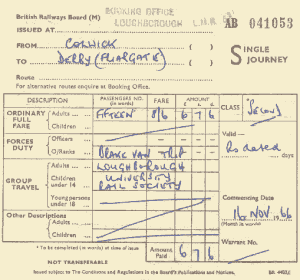 British Railways Board (M)
BOOKING OFFICE
LOUGHBOROUGH L.M.R.
AB 041053
ISSUED AT
FROM COLWICK ( )
TO DERBY (FRIARGATE) ( )
SINGLE JOURNEY
Route
For alternative routes enquire at Booking Office.
DESCRIPTION PASSENGERS NO. (in words) FARE AMOUNT £ s. d. CLASS
ORDINARY FULL FARE Adults ... FIFTEEN 8/6 6 7 6 Second
Children
Valid
FORCES DUTY Officers
O/Ranks BRAKE VAN TRIP
As dated days
GROUP TRAVEL Adults ... LOUGHBOROUGH
Children under 14 UNIVERSITY
RAIL SOCIETY
Young persons under 18
Commencing Date
Other Descriptions Adults ...
16 NOV. 66
Children
Warrant No.
* To be completed (in words) at time of issue
Amount Paid 6 7 6
NOT TRANSFERABLE
Issued subject to the Conditions and Regulations in the Board's Publications and Notices.